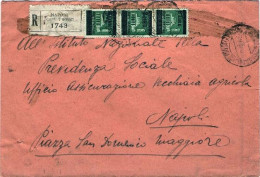 R
1743
All'Istituto Nazionale della
Previdenza Sociale
Ufficio Assicurazione Vecchiaia agricola
Napoli
Piazza San Domenico Maggiore